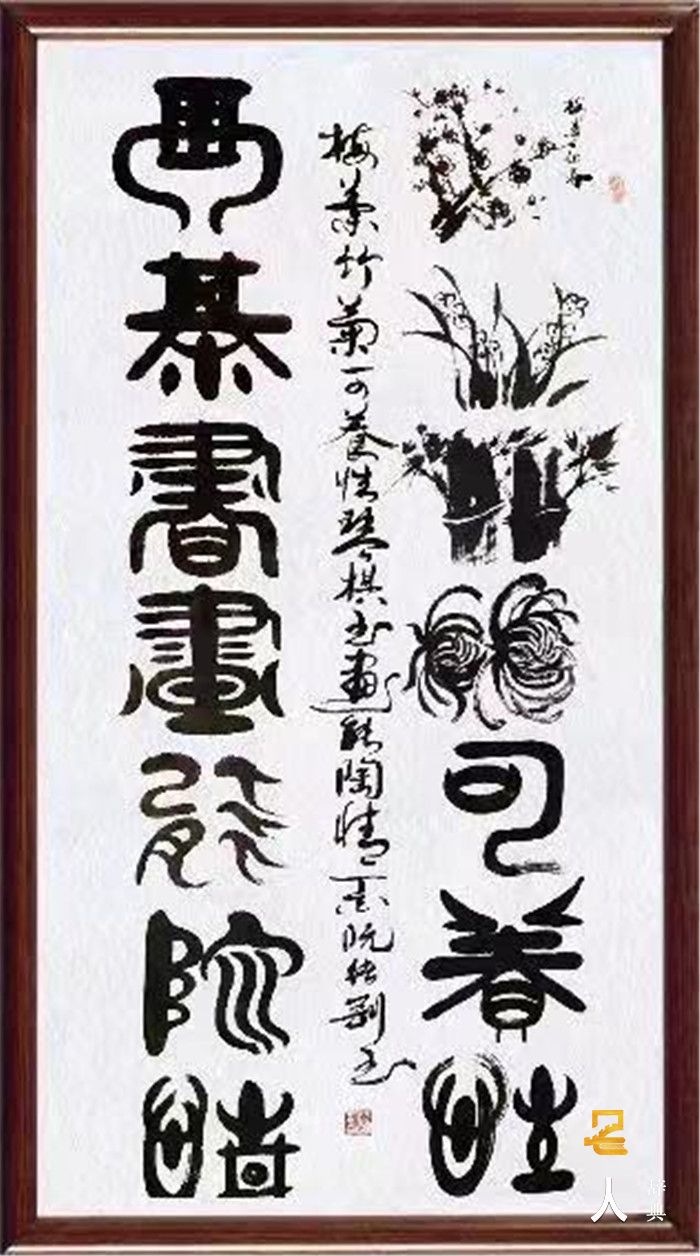 可養性
梅蘭竹菊可養性琴棋書畫能陶情
琴棊書畫能陶情
名人
辞典